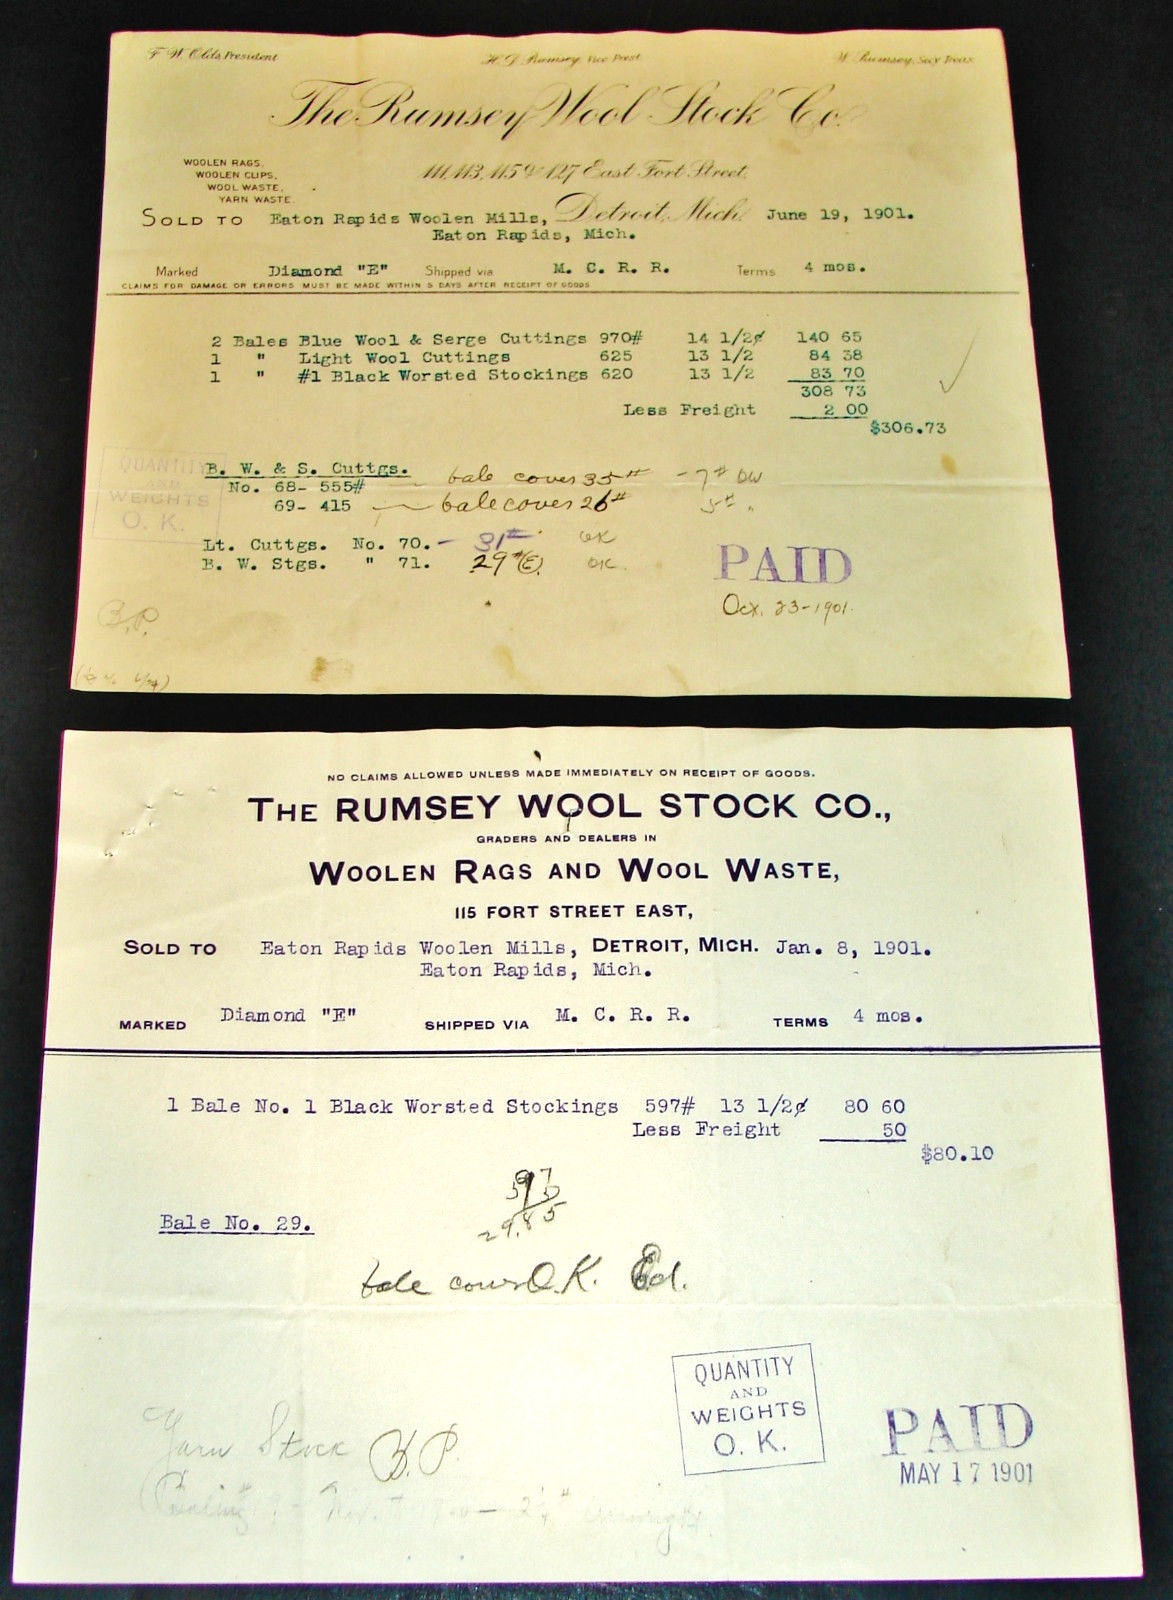 F. W. Olds, President H. D. Rumsey, Vice Prest. W. Rumsey, Sec'y Treas.
The Rumsey Wool Stock Co.
WOOLEN RAGS,
WOOLEN CLIPS,
WOOL WASTE,
YARN WASTE.
111, 113, 115 & 127 East Fort Street,
SOLD TO Eaton Rapids Woolen Mills, Detroit, Mich. June 19, 1901.
Eaton Rapids, Mich.
Marked Diamond "E" Shipped via M. C. R. R. Terms 4 mos.
CLAIMS FOR DAMAGE OR ERRORS MUST BE MADE WITHIN 5 DAYS AFTER RECEIPT OF GOODS
2 Bales Blue Wool & Serge Cuttings 970# 14 1/2¢ 140 65
1 " Light Wool Cuttings 625 13 1/2 84 38
1 " #1 Black Worsted Stockings 620 13 1/2 83 70
308 73
Less Freight 2 00
$306.73
QUANTITY
AND
WEIGHTS
O. K.
B. W. & S. Cuttgs.
No. 68- 555# bale cover 35# - 7#
69- 415 bale cover 26#
Lt. Cuttgs. No. 70. - 31# OK
B. W. Stgs. " 71. 29# (E) OK.
PAID
Oct. 23-1901.
B.P.
NO CLAIMS ALLOWED UNLESS MADE IMMEDIATELY ON RECEIPT OF GOODS.
THE RUMSEY WOOL STOCK CO.,
GRADERS AND DEALERS IN
WOOLEN RAGS AND WOOL WASTE,
115 FORT STREET EAST,
SOLD TO Eaton Rapids Woolen Mills, DETROIT, MICH. Jan. 8, 1901.
Eaton Rapids, Mich.
MARKED Diamond "E" SHIPPED VIA M. C. R. R. TERMS 4 mos.
1 Bale No. 1 Black Worsted Stockings 597# 13 1/2¢ 80 60
Less Freight 50
$80.10
597
29.85
Bale No. 29.
bale cover O.K. Ed.
QUANTITY
AND
WEIGHTS
O. K.
PAID
MAY 17 1901
Yarn Stock B.P.